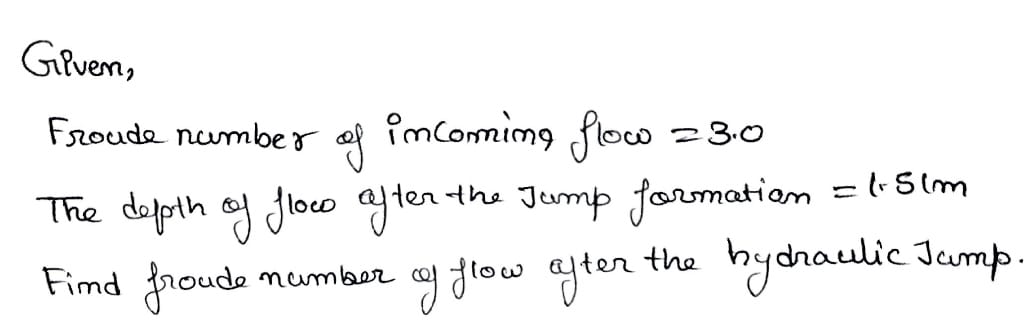 Given,
Froude number of incoming flow = 3.0
The depth of flow after the Jump formation = 1.51m
Find froude number of flow after the hydraulic Jump.